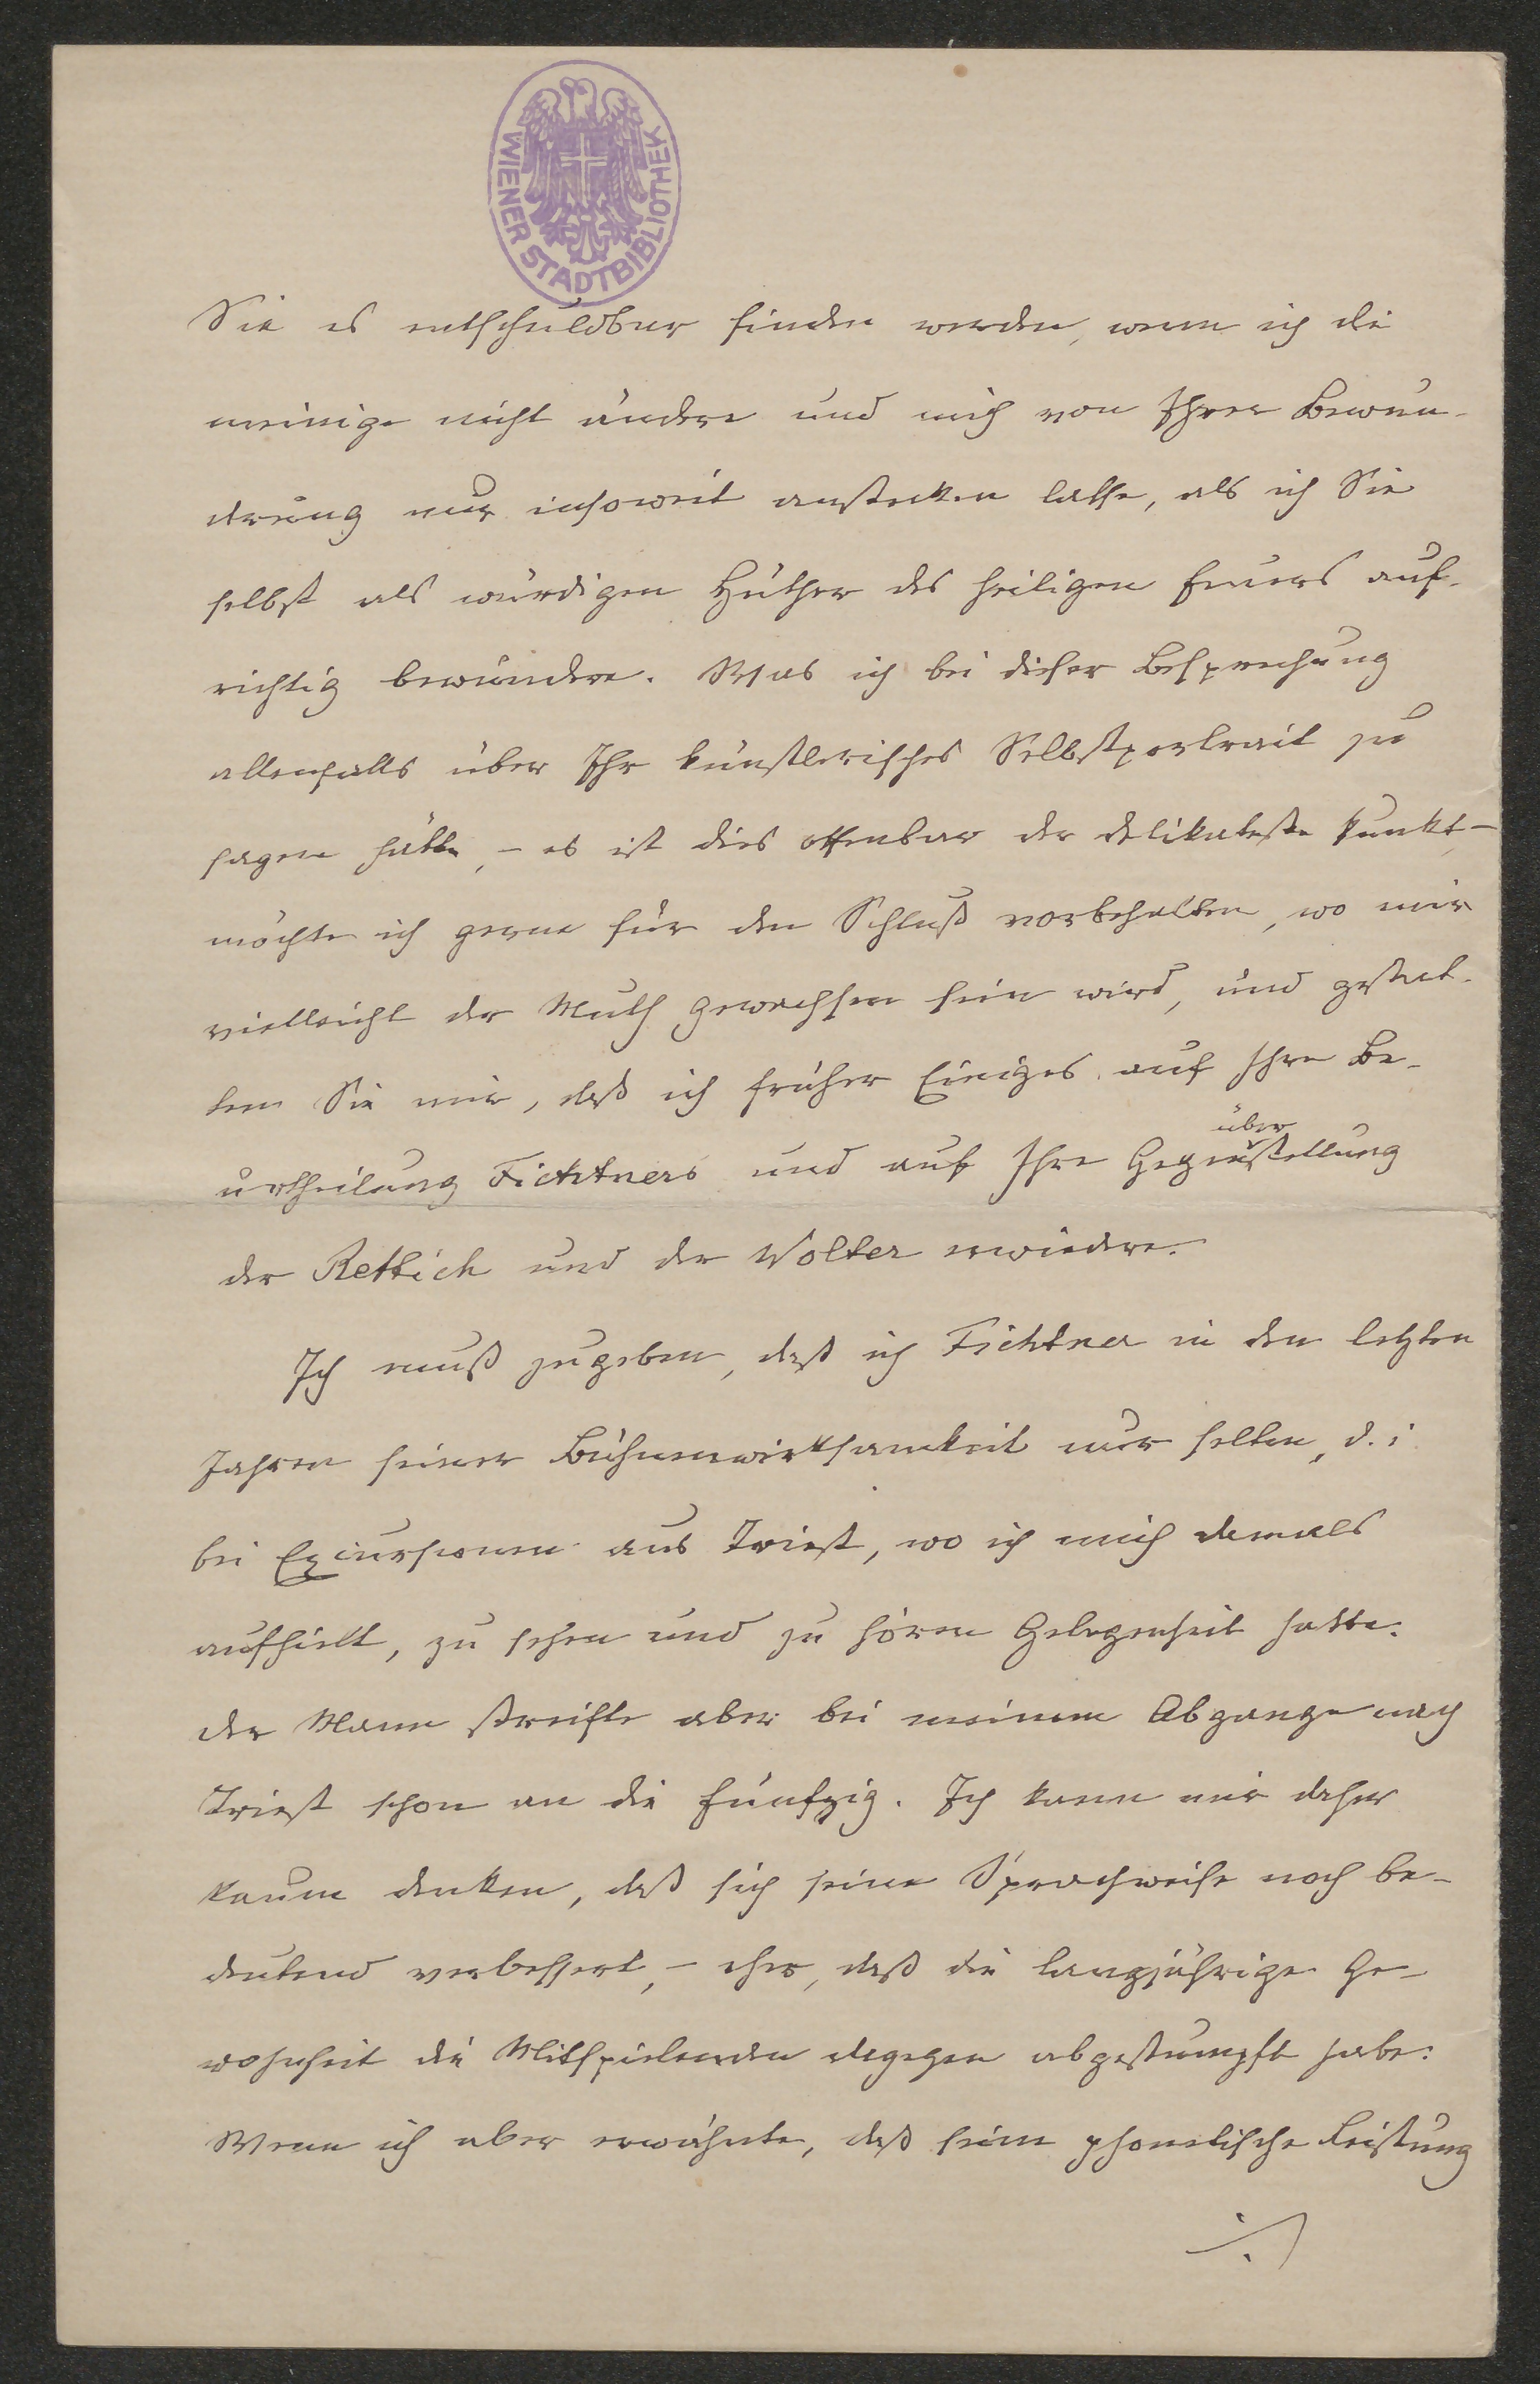 WIENER STADTBIBLIOTHEK
Sie es entschuldbar finden werden, wenn ich die
meinige nicht ändere und mich von Ihrer Bewun-
derung nur insoweit anstecken lasse, als ich Sie
selbst als würdigen Hüther des heiligen Feuers auf-
richtig bewundere. Was ich bei dieser Besprechung
allenfalls über Ihr künstlerisches Selbstportrait zu
sagen hätte, – es ist dies offenbar der delikateste Punkt, –
möchte ich gerne für den Schluß vorbehalten, wo mir
vielleicht der Muth gewachsen sein wird, und gestat-
ten Sie mir, daß ich früher Einiges auf Ihre Be-
über
urtheilung Fichtners und auf Ihre Gegenstellung
der Rettich und der Wolter erwiedere.
Ich muß zugeben, daß ich Fichtner in den letzten
Jahren seiner Bühnenwirksamkeit nur selten, d. i.
bei Excursionen aus Triest, wo ich mich damals
aufhielt, zu sehen und zu hören Gelegenheit hatte.
Der Mann streifte aber bei meinem Abgange nach
Triest schon an die fünfzig. Ich kann mir daher
kaum denken, daß sich seine Sprachweise noch be-
deutend verbessert, – eher, daß die langjährige Ge-
wohnheit die Mitspielenden dagegen abgestumpft habe.
Wenn ich aber erwähnte, daß seine phonetische Leistung
./.